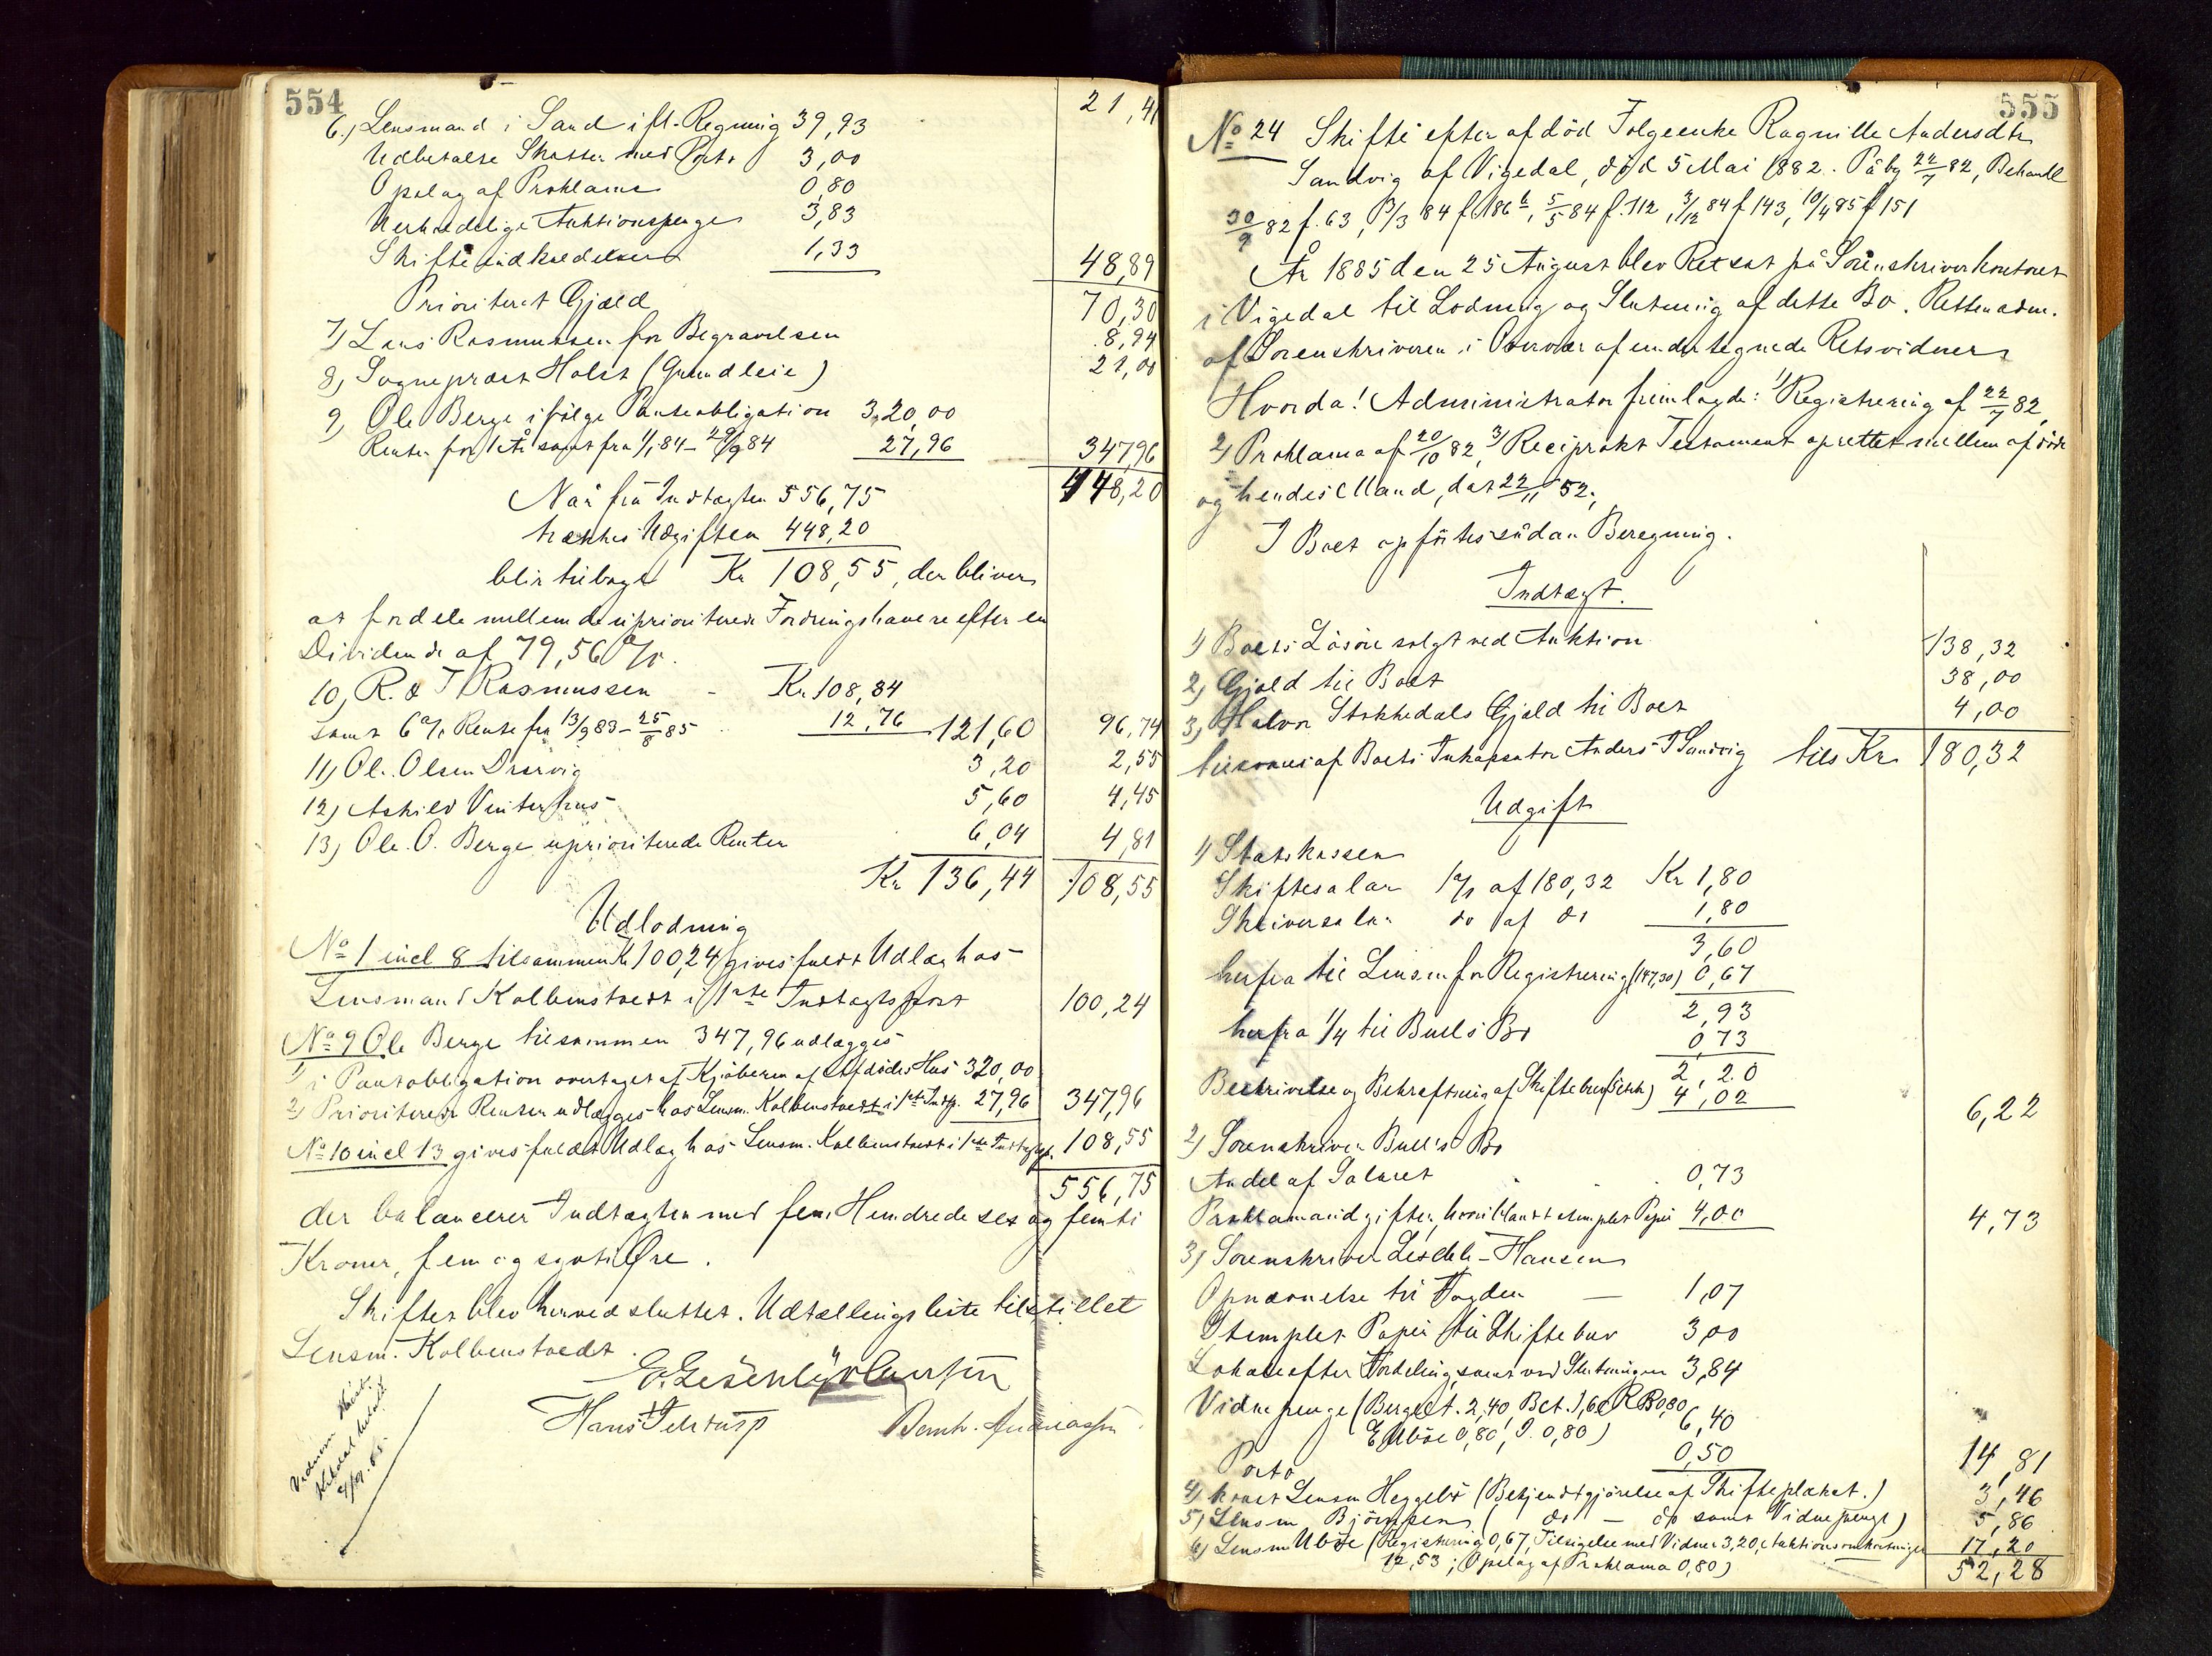 554
21,41
6.) Lensmand i Sand ifl. Regning 39,93
Udbetalte Skatter med Porto 3,00
Opslag af Proklama 0,80
Uerholdelige Auktionspenge 3,83
Skifteindkaldelser 1,33
48,89
Prioriteret Gjæld
70,30
7) Lars Rasmussen for Begravelsen 8,94
8) Sognepræst Holst (Grundleie) 21,00
9) Ole Berge ifølge Panteobligation 320,00
Renter for 1 År samt fra 1/1 84 - 29/9 84 27,96
347,96
448,20
Når fra Indtægten 556,75
trækkes Udgiften 448,20
blir tilbage Kr 108,55, der bliver
at fordele mellem de uprioriterede Fordringshavere efter en
Dividende af 79,56 %.
10) R. & T. Rasmussen - Kr. 108,84
samt 6 % Rente fra 13/9 83 - 25/8 85 12,76 121,60 96,74
11) Ol. Olsen 3,20 2,55
12) Askild Vinterhus 5,60 4,45
13) Ole. O. Berge uprioriterede Renter 6,04 4,81
Kr 136,44 108,55
Udlodning
No 1 incl 8 tilsammen Kr 100,24 gives fuldt Udlæg hos
Lensmand Kolbenstvedt i 1ste Indtægtspost 100,24
No 9 Ole Berge tilsammen 347,96 udlægges
1) i Pantobligation overtaget af Kjøberen af Afdødes Hus 320,00
2) Prioriterede Renter udlægges hos Lensm. Kolbenstvedt i 1ste Indtp. 27,96 347,96
No 10 incl 13 gives fuldt Udlæg hos Lensm. Kolbenstvedt i 1ste Indtægtsp. 108,55
556,75
der balancerer Indtægten med fem Hundrede sex og femti
Kroner, fem og sytti Øre.
Skiftet blev hermed sluttet. Udtællingsliste tilstillet
Lensm. Kolbenstvedt.
Hans Bernh.
555
No 24 Skifte efter afdød Folgeenke Ragnille Andersdtr
Sandvig af Vigedal, død 5 Mai 1882. Påbg 22/7 82, Behandl
30/9 82 f. 63, 84 f. 86 b, 5/5 84 f. 112, 3/12 84 f 143, 10/4 85 f 151
År 1885 den 25 August blev Ret sat på Sorenskriverkontoret
i Vigedal til Lodning og Slutning af dette Bo. Retten adm.
af Sorenskriveren i Overvær af undertegnede Retsvidner
Hvorda! Administrator fremlagde: 1) Registrering af 22/7 82,
2) Proklama af 20/10 82, 3) Reciprokt Testament oprettet mellem afdøde
og hendes Mand, dat 22/11 52;
I Boet opførtes sådan Beregning.
Indtægt.
1) Boets Løsøre solgt ved Auktion 138,32
2) Gjæld til Boet 38,00
3) Halvor Stokkedals Gjæld til Boet 4,00
tilsvares af Boets Inkassator Anders T Sandvig tils Kr. 180,32
Udgift
1) Statskassen
Skiftesalar 1 % af 180,32 Kr 1,80
Skriversalar do af do 1,80
3,60
herfra til Lensm for Registrering (147,30) 0,67
2,93
herfra 1/4 til Bulls Bo 0,73
2,20
Beskrivelse og Bekræftning af Skiftebrev 4,02
6,22
2) Sorenskriver Bull's Bo
Andel af Salaret 0,73
Proklamaudgifter, hvoriblandt stemplet Papir 4,00
4,73
3) Sorenskriver - Hansen
Opnævnelse til Fogden — 1,07
Stemplet Papir til Skiftebrev 3,00
Lokale efter Fordeling samt ved Slutningen 3,84
Vidnepenge (Berge t. 2,40, Bet. 1,60, R 0,80
E Ubøe 0,80, 0,80) 6,40
Porto 0,50
14,81
4) Lensm Heggebø (Bekjendtgjørelse af Skifteplakat.) 3,46
5) Lensm (do — do samt Vidnepenge) 5,86
6) Lensm Ubøe (Registrering 0,67, Tilsigelse med Vidner 3,20, Auktionsomkostninger 17,20
12,53; Opslag af Proklama 0,80)
52,28